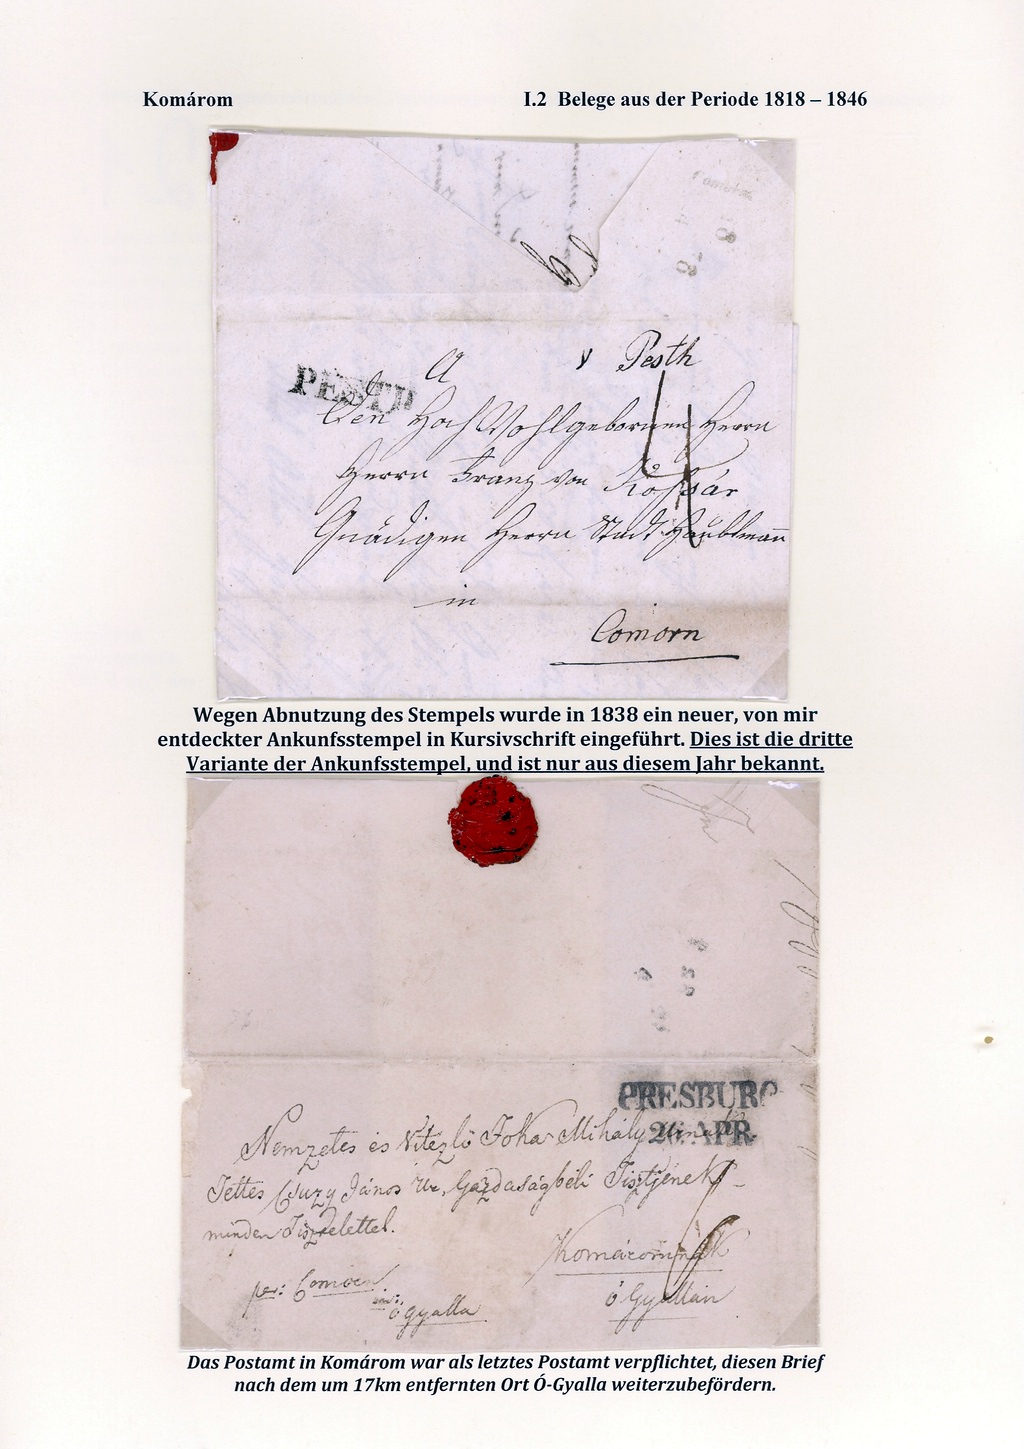 Komárom I.2 Belege aus der Periode 1818 – 1846
v Pesth
PESTH
A
Den HochWohlgebornen Herrn
Herrn Franz von
Gnädigen Herrn Stadt Haubtmann
in
Comorn
Wegen Abnutzung des Stempels wurde in 1838 ein neuer, von mir
entdeckter Ankunfsstempel in Kursivschrift eingeführt. Dies ist die dritte
Variante der Ankunfsstempel, und ist nur aus diesem Jahr bekannt.
PRESBURG
26. APR.
Nemzetes és Vitézlö Mihály
Csuzy János Ur, Gazdaságbéli Tisztjének
minden Tisztelettel.
per: Comorn
ó gyalla
ó Gyallán
Das Postamt in Komárom war als letztes Postamt verpflichtet, diesen Brief
nach dem um 17km entfernten Ort Ó-Gyalla weiterzubefördern.